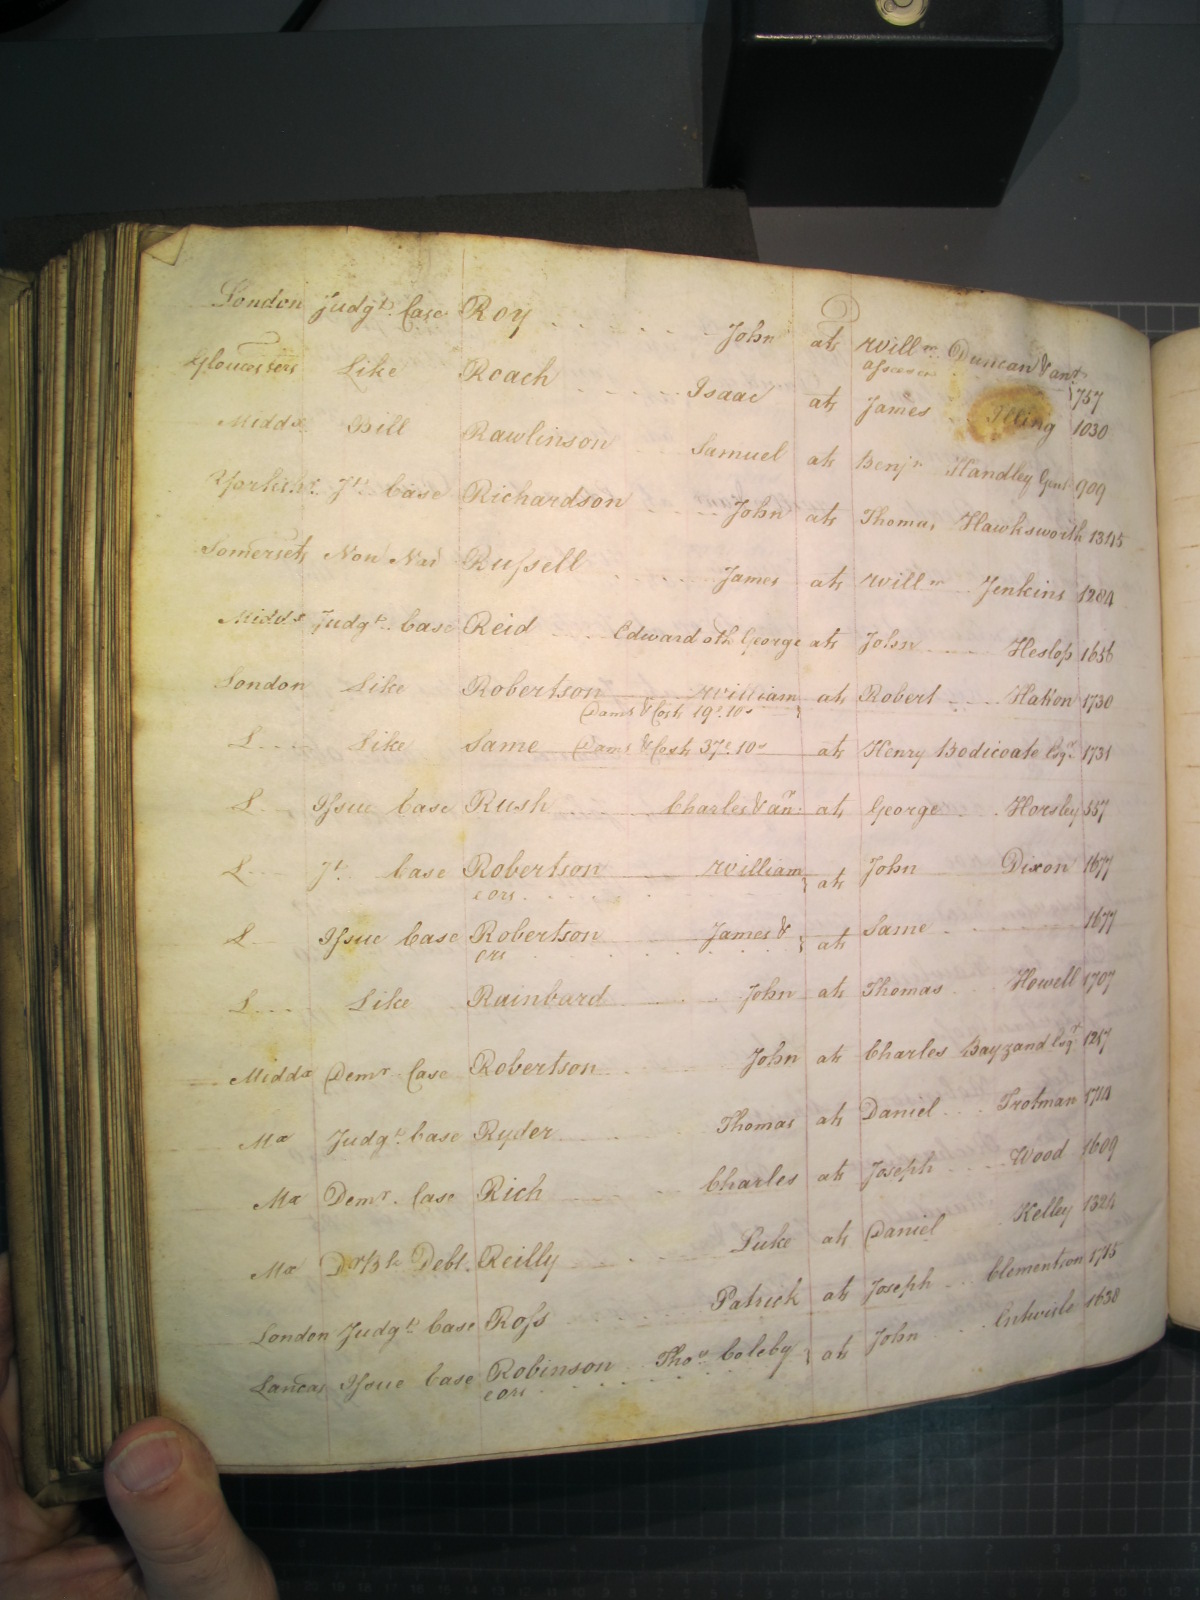 London Judgt. Case Roy John at Willm. Duncan & anr.
assees &c 757
Gloucesters Like Roach Isaac at James Illing 1030
Middx Bill Rawlinson Samuel at Benjn Handley Gent 909
Yorkshr. Jt. Case Richardson John at Thomas Hawksworth 1345
Somersets Russell James at Willm Jenkins 1284
Middx Judgt. Case Reid Edward oth George at John Heslop 1656
London Like Robertson William at Robert Hatton 1730
Dams & Costs 19£. 10s
L Like Same Dams & Costs 37£. 10s at Henry Bodicoate Esqr. 1731
L Issue Case Rush Charles & anr. at George Horsley 557
L Jt. Case Robertson William at John Dixon 1677
e ors
L Issue Case Robertson James & at Same 1677
ors
L Like Rainbard John at Thomas Howell 1707
Middx Demr. Case Robertson John at Charles Bayzand Esqr. 1217
Mx Judgt. Case Ryder Thomas at Daniel Trotman 1714
Mx Demr. Case Rich Charles at Joseph Wood 1609
Mx Debt. Reilly Luke at Daniel Kelley 1324
London Judgt. Case Ross Patrick at Joseph Clementson 1715
Lancas Issue Case Robinson Thos. Coleby at John Entwisle 1638
e ors